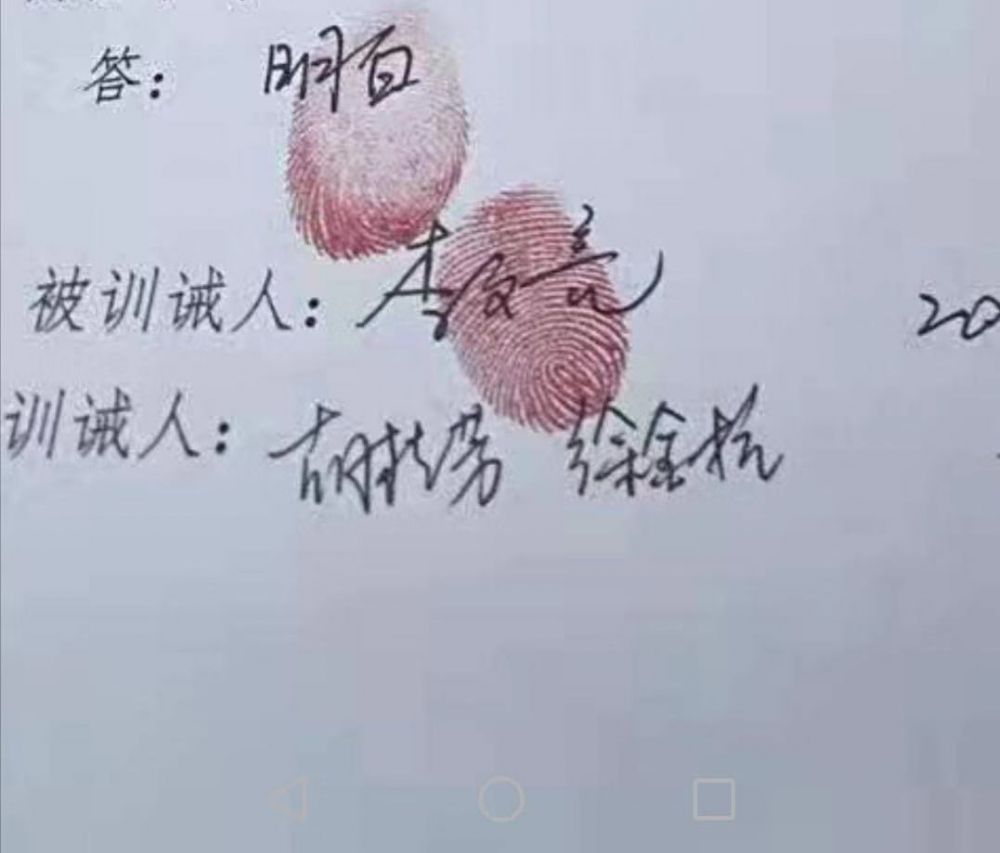 答：明白
被训诫人：李文亮 20
训诫人：胡桂芳 徐金杭